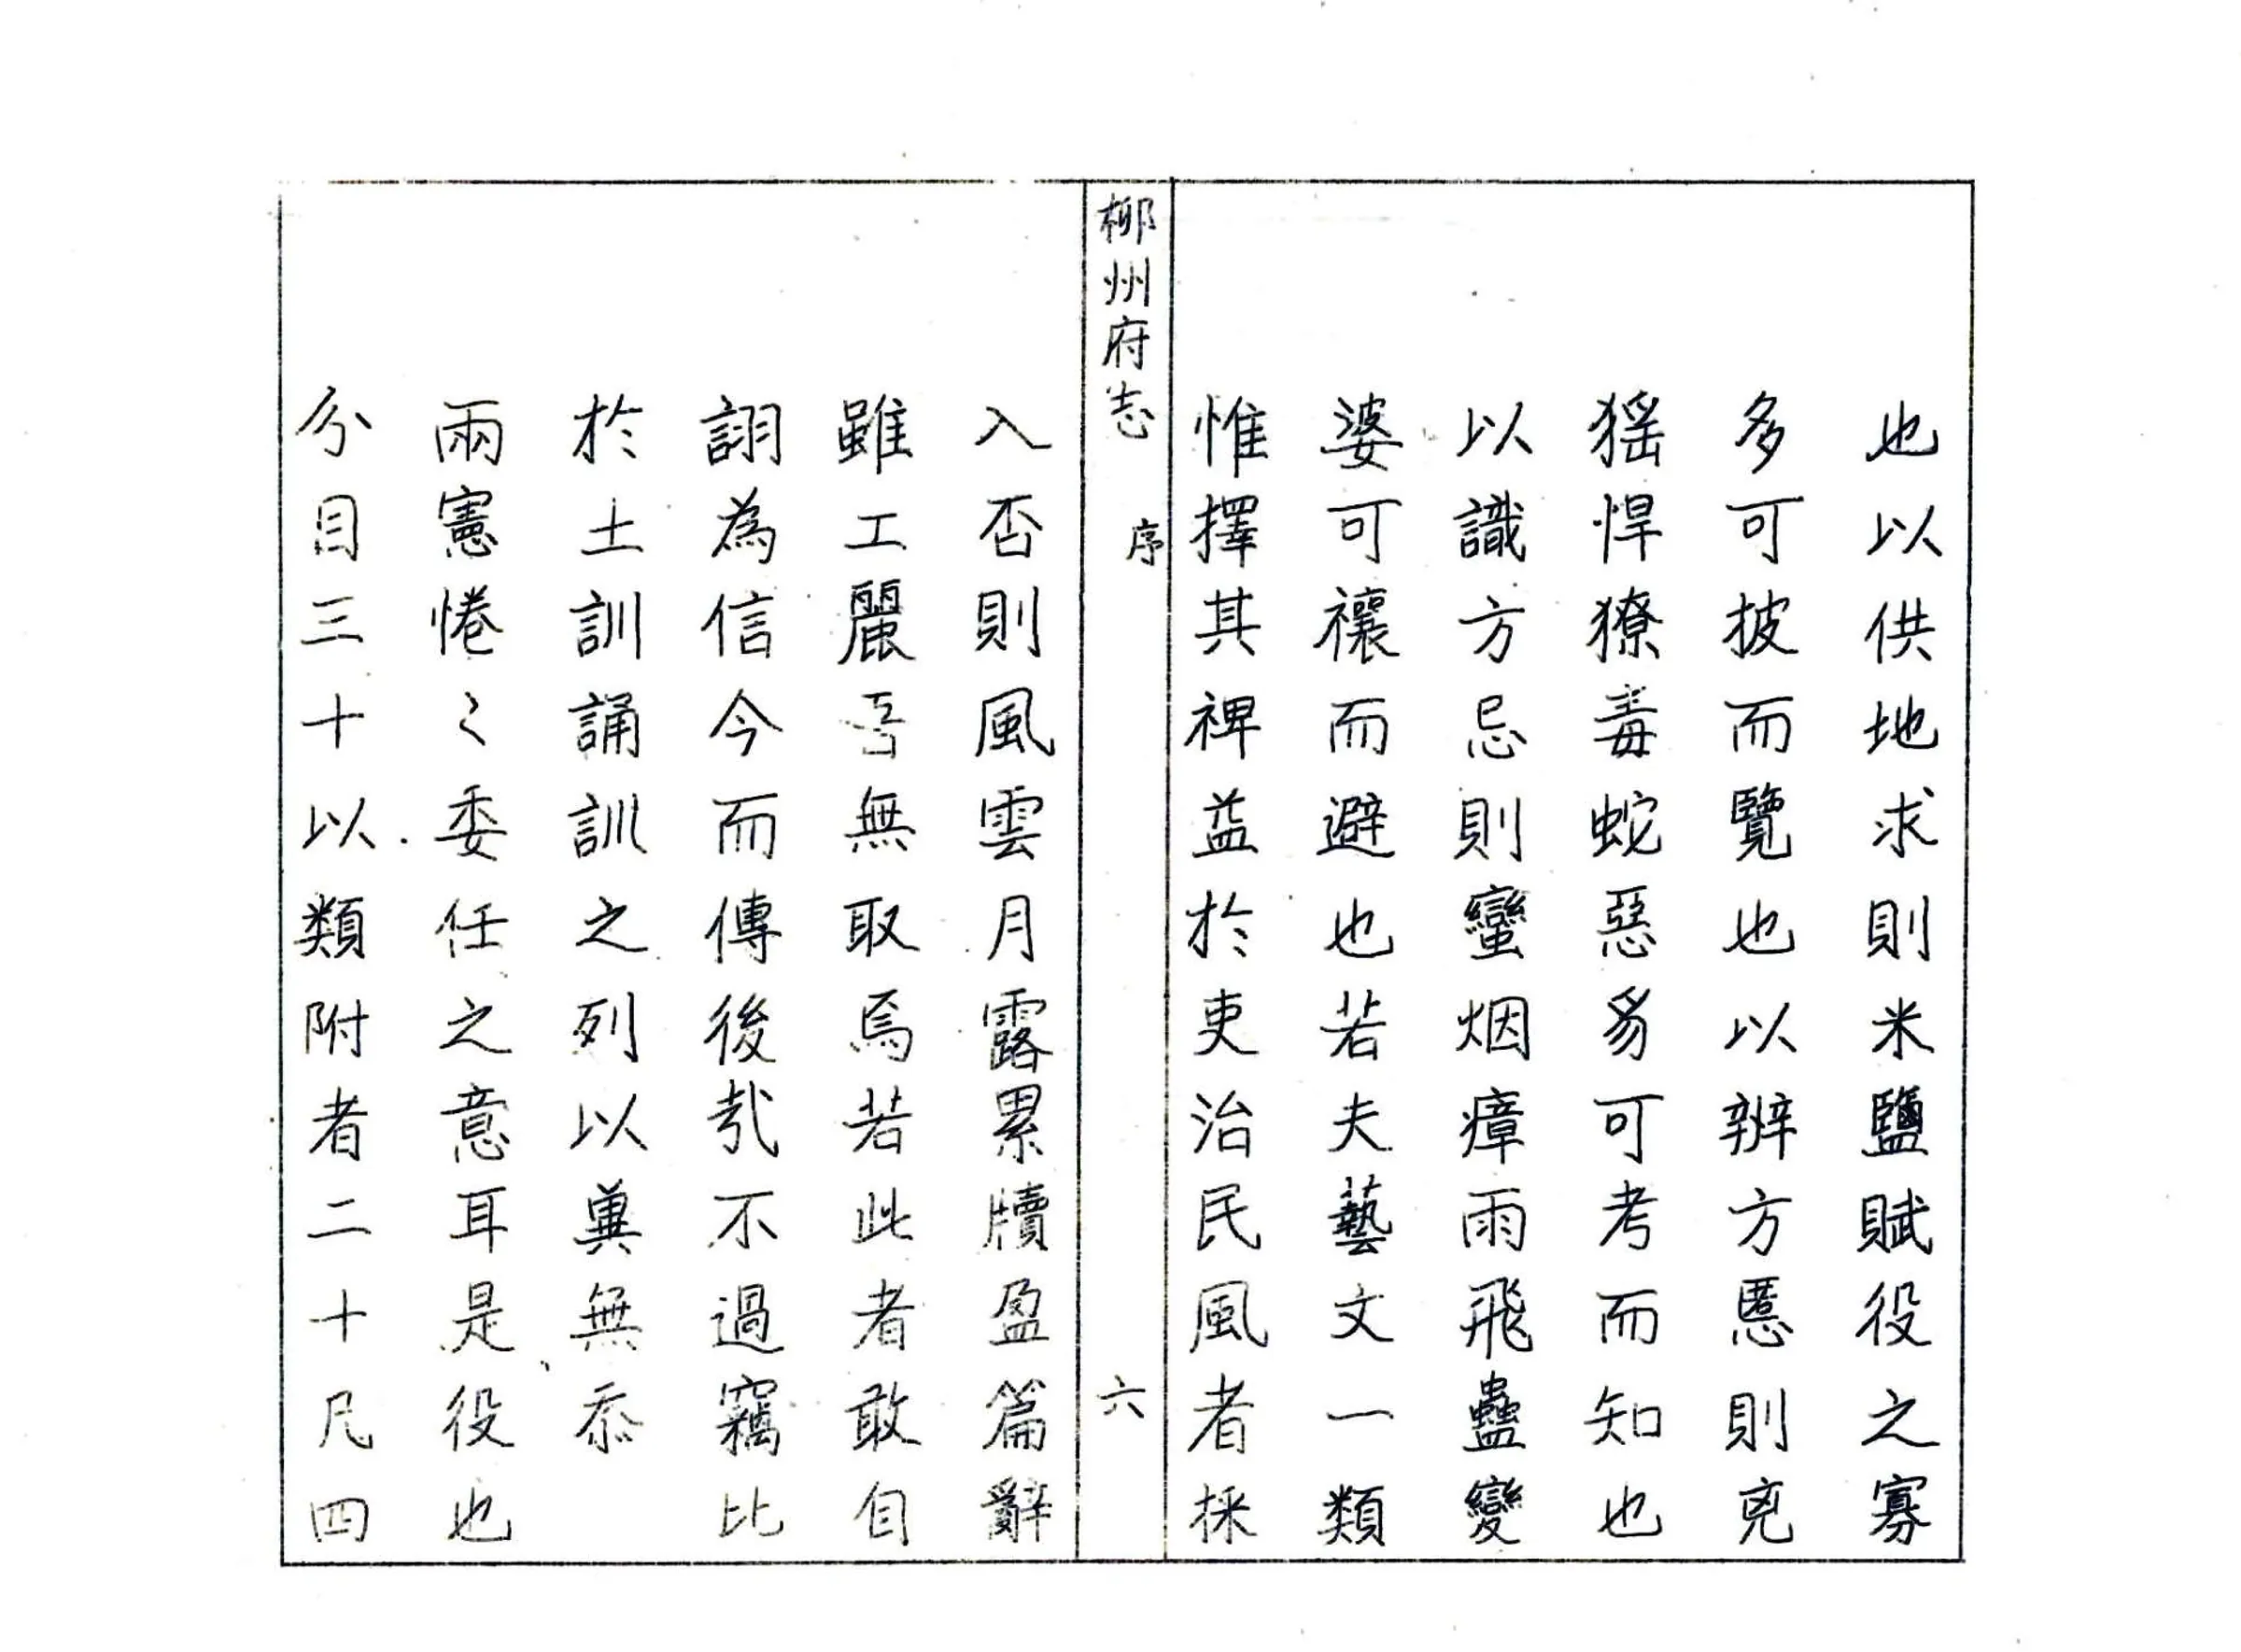 也以供地求則米鹽賦役之寡
多可披而覽也以辨方慝則兇
猺悍獠毒蛇惡豸可考而知也
以識方忌則蠻烟瘴雨飛蠱變
婆可禳而避也若夫藝文一類
惟擇其裨益於吏治民風者採
柳州府志 序 六
入否則風雲月露累牘盈篇辭
雖工麗吾無取焉若此者敢自
詡為信今而傳後㢤不過竊比
於土訓誦訓之列以冀無忝
兩憲惓〻委任之意耳是役也
分目三十以類附者二十凡四